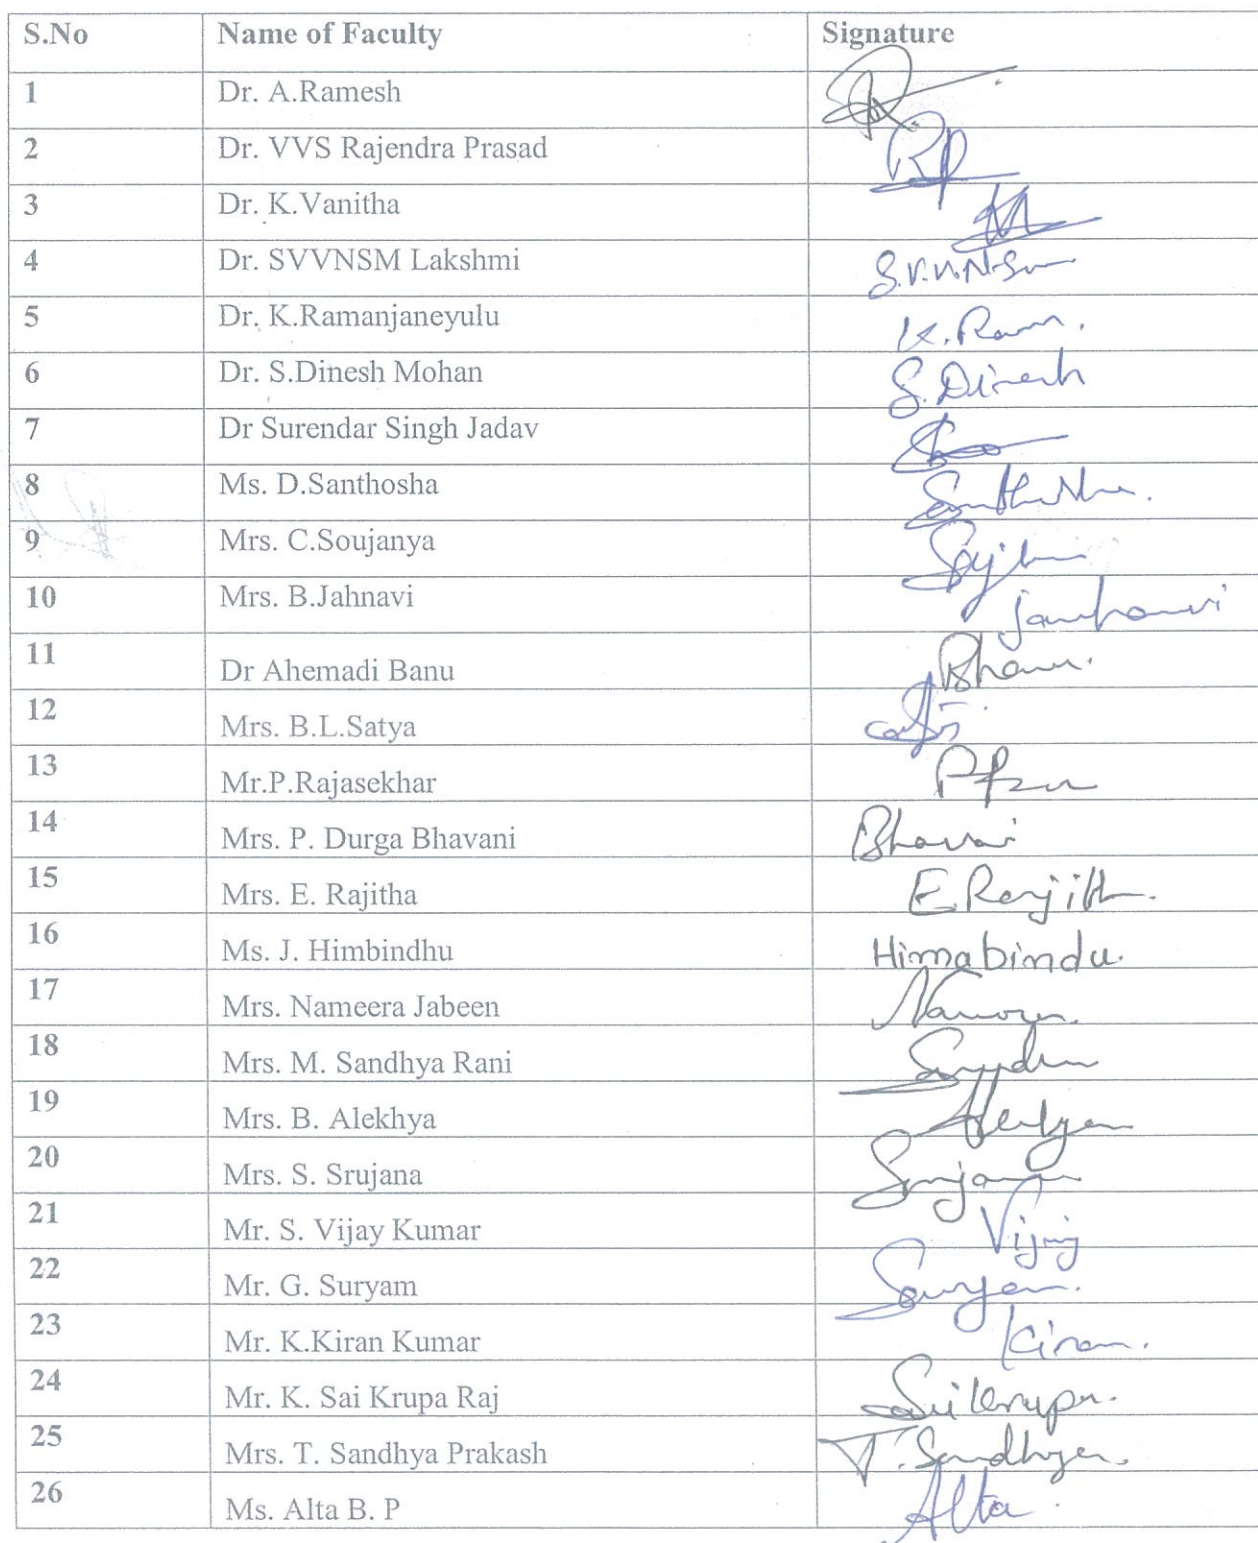 S.No Name of Faculty Signature
1 Dr. A.Ramesh
2 Dr. VVS Rajendra Prasad
3 Dr. K.Vanitha
4 Dr. SVVNSM Lakshmi
5 Dr. K.Ramanjaneyulu K. Ram.
6 Dr. S.Dinesh Mohan S. Dinesh
7 Dr Surendar Singh Jadav
8 Ms. D.Santhosha
9 Mrs. C.Soujanya
10 Mrs. B.Jahnavi
11 Dr Ahemadi Banu Bhanu.
12 Mrs. B.L.Satya
13 Mr.P.Rajasekhar
14 Mrs. P. Durga Bhavani
15 Mrs. E. Rajitha
16 Ms. J. Himbindhu Himabindu.
17 Mrs. Nameera Jabeen
18 Mrs. M. Sandhya Rani
19 Mrs. B. Alekhya
20 Mrs. S. Srujana Srujana
21 Mr. S. Vijay Kumar Vijay
22 Mr. G. Suryam Suryam.
23 Mr. K.Kiran Kumar Kiran.
24 Mr. K. Sai Krupa Raj Sai krupa.
25 Mrs. T. Sandhya Prakash T. Sandhya.
26 Ms. Alta B. P Alta.